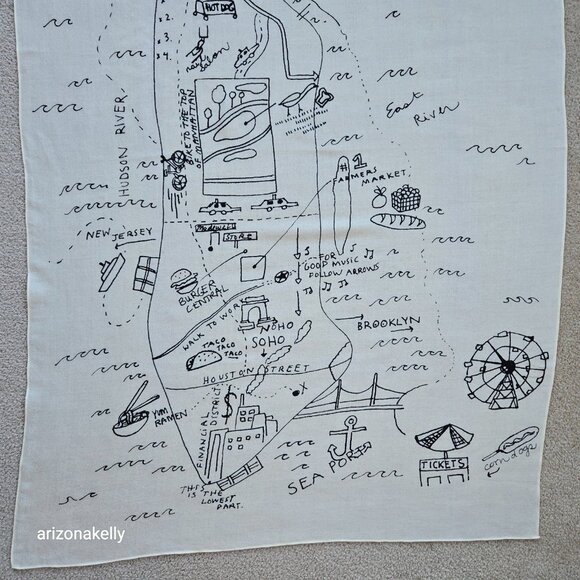 2.
3.
4.
HOT DOG
nail salon
BIKE TO THE TOP
OF MANHATTAN
HUDSON RIVER
East
River
# 1
FARMERS
MARKET
NEW JERSEY
STORE
FOR
GOOD MUSIC
FOLLOW ARROWS
BURGER
CENTRAL
WALK TO WORK
NOHO
SOHO
BROOKLYN
TACO
TACO
TACO
HOUSTON STREET
X
YUM
RAMEN
FINANCIAL
DISTRICT
$
SEA PORT
TICKETS
corn dogs
THIS
IS THE
LOWEST
PART.
arizonakelly